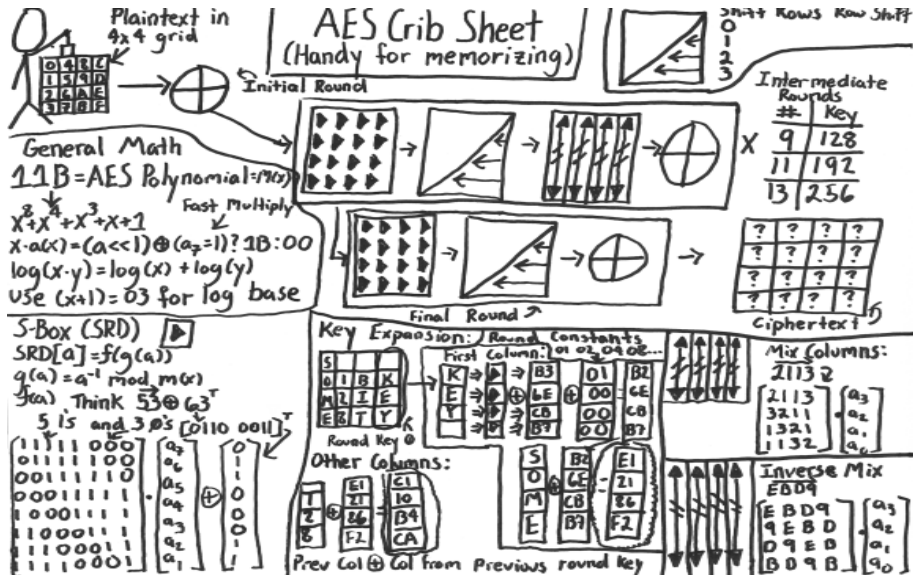 Plaintext in
4x4 grid
0 4 8 C
1 5 9 D
2 6 A E
3 7 B F
Initial Round
AES Crib Sheet
(Handy for memorizing)
Shift Rows Row Shift
0
1
2
3
Intermediate
Rounds
# Key
9 128
11 192
13 256
X
General Math
11B = AES Polynomial = M(x)
x⁸+x⁴+x³+x+1
Fast Multiply
x·a(x)=(a<<1)⊕(a₇=1)?1B:00
log(x·y)=log(x)+log(y)
Use (x+1)=03 for log base
Final Round
? ? ? ?
? ? ? ?
? ? ? ?
? ? ? ?
Ciphertext
S-Box (SRD)
SRD[a]=f(g(a))
g(a)=a⁻¹ mod m(x)
f(a) Think 53⊕63ᵀ
5 1's and 3 0's [0110 0011]ᵀ
1 1 1 1 1 0 0 0
0 1 1 1 1 1 0 0
0 0 1 1 1 1 1 0
0 0 0 1 1 1 1 1
1 0 0 0 1 1 1 1
1 1 0 0 0 1 1 1
1 1 1 0 0 0 1 1
a₇
a₆
a₅
a₄
a₃
a₂
a₁
⊕
0
1
1
0
0
0
1
Key Expansion: Round Constants
01 02 04 08...
First Column:
S
O 1 B K
M 2 I E
E 8 T Y
Round Key 0
K ⇒ ⇒ B3 01 B2
E ⇒ ⇒ 6E ⊕ 00 = 6E
Y ⇒ ⇒ CB 00 CB
⇒ ⇒ B7 00 B7
S B2 E1
O ⊕ 6E = 21
M CB 86
E B7 F2
Other Columns:
E1 C1
1 21 10
2 ⊕ 86 = B4
8 F2 CA
Prev Col ⊕ Col from Previous round key
Mix Columns:
2113
2 1 1 3
3 2 1 1
1 3 2 1
1 1 3 2
a₃
a₂
a₁
a₀
Inverse Mix
EBD9
E B D 9
9 E B D
D 9 E B
B D 9 B
a₃
a₂
a₁
a₀